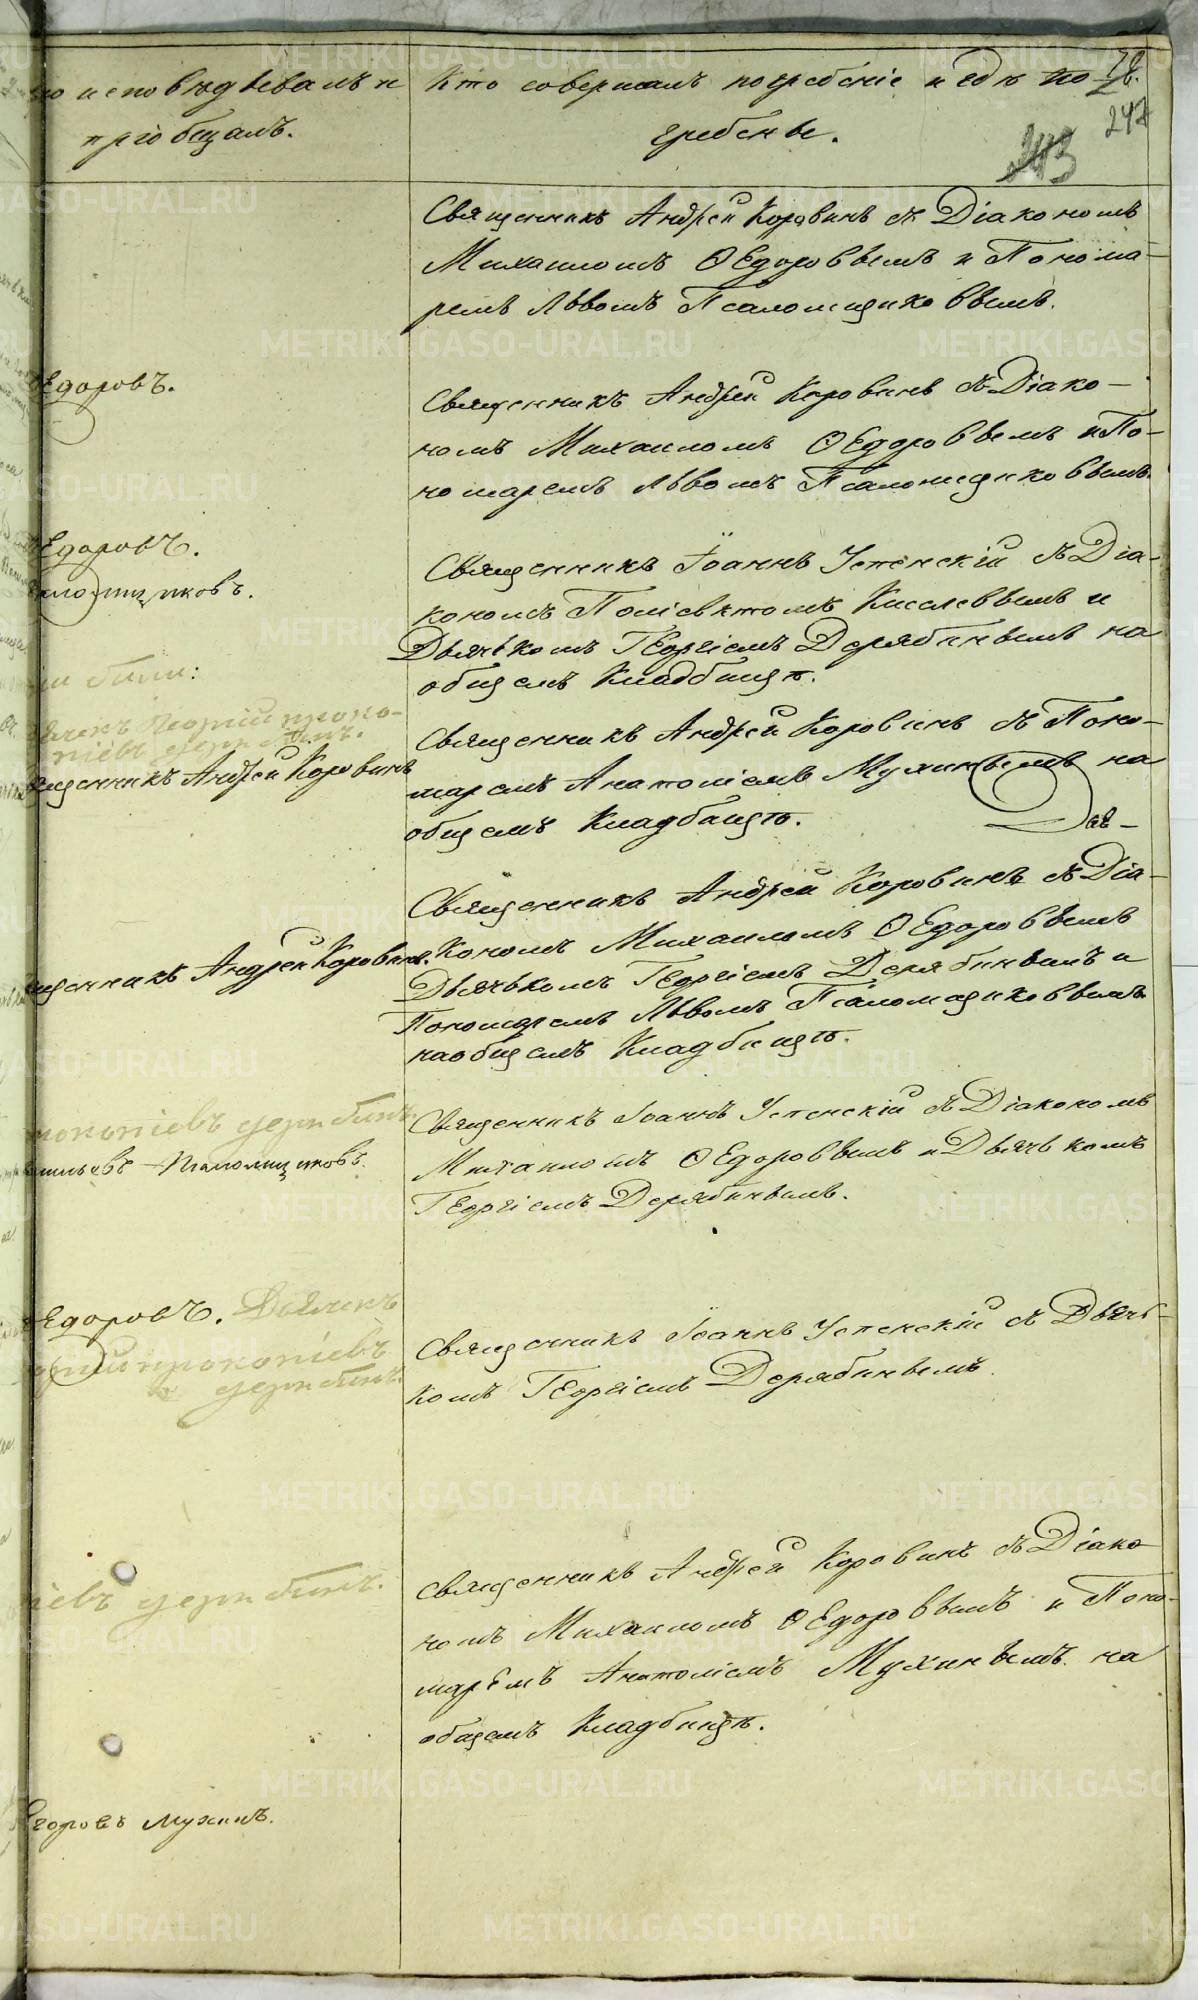 исповѣдывалъ и
пріобщалъ.
Кто совершалъ погребеніе и гдѣ по-
гребены.
247
243
Священникъ Андрей Коровинъ съ Діакономъ
Михаиломъ Ѳедоровымъ и Понома-
ремъ Львомъ Псаломщиковымъ.
едоровъ.
Священникъ Андрей Коровинъ съ Діако-
номъ Михаиломъ Ѳедоровымъ и По-
номаремъ Львомъ Псаломщиковымъ.
едоровъ.
аломщиковъ.
Священникъ Іоаннъ Успенскій съ Діа-
кономъ Поліевктомъ Киселевымъ и
Дьячькомъ Георгіемъ Дерябинымъ на
общемъ Кладбищѣ.
были:
ячекъ Георгій Проко-
піевъ Дерябинъ.
ященникъ Андрей Коровинъ
Священникъ Андрей Коровинъ съ Поно-
маремъ Анатоліемъ Мухинымъ на
общемъ Кладбищѣ.
Священникъ Андрей Коровинъ съ Діа-
кономъ Михаиломъ Ѳедоровымъ
Дьячькомъ Георгіемъ Дерябинымъ и
Пономаремъ Львомъ Псаломщиковымъ
на общемъ Кладбищѣ.
щенникъ Андрей Коровинъ
рокопіевъ Дерябинъ.
сильевъ Псаломщиковъ.
Священникъ Іоаннъ Успенскій съ Діакономъ
Михаиломъ Ѳедоровымъ и Дьячькомъ
Георгіемъ Дерябинымъ.
едоровъ. Дьячекъ
ргій Прокопіевъ
Дерябинъ.
Священникъ Іоаннъ Успенскій съ Дьячь-
комъ Георгіемъ Дерябинымъ.
іевъ Дерябинъ.
Священникъ Андрей Коровинъ съ Діако-
номъ Михаиломъ Ѳедоровымъ и Поно-
маремъ Анатоліемъ Мухинымъ на
общемъ Кладбищѣ.
Егоровъ Мухинъ.
METRIKI.GASO-URAL.RU